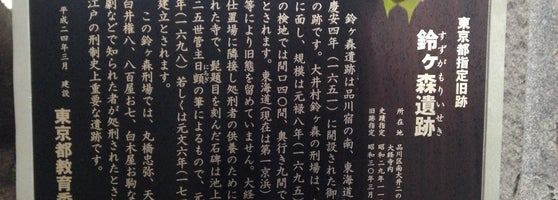 東京都指定旧跡
鈴ヶ森遺跡
すずがもりいせき
所在地 品川区南大井二の
大経寺内
史蹟指定 昭和二九年一一
旧跡指定 昭和三〇年三月
鈴ヶ森遺跡は品川宿の南、東海道
慶安四年(一六五一)に開設された御
の跡です。大井村鈴ヶ森の刑場は、
に面し、規模は元禄八年(一六九五)
の検地では間口四〇間、奥行き九間で
とされます。東海道(現在は第一京浜)
等により旧態を留めていません。大経
仕置場に隣接し処刑者の供養のために
れた寺で、髭題目を刻んだ石碑は池上
二五世管主日顗の筆によるもので、元
年(一六九八)若しくは元文六年(一七
建立とされます。
この鈴ヶ森刑場では、丸橋忠弥、天
白井権八、八百屋お七、白木屋お駒な
劇などで知られた者も処刑されたとさ
江戸の刑制史上重要な遺跡です。
平成二四年三月 建設
東京都教育委